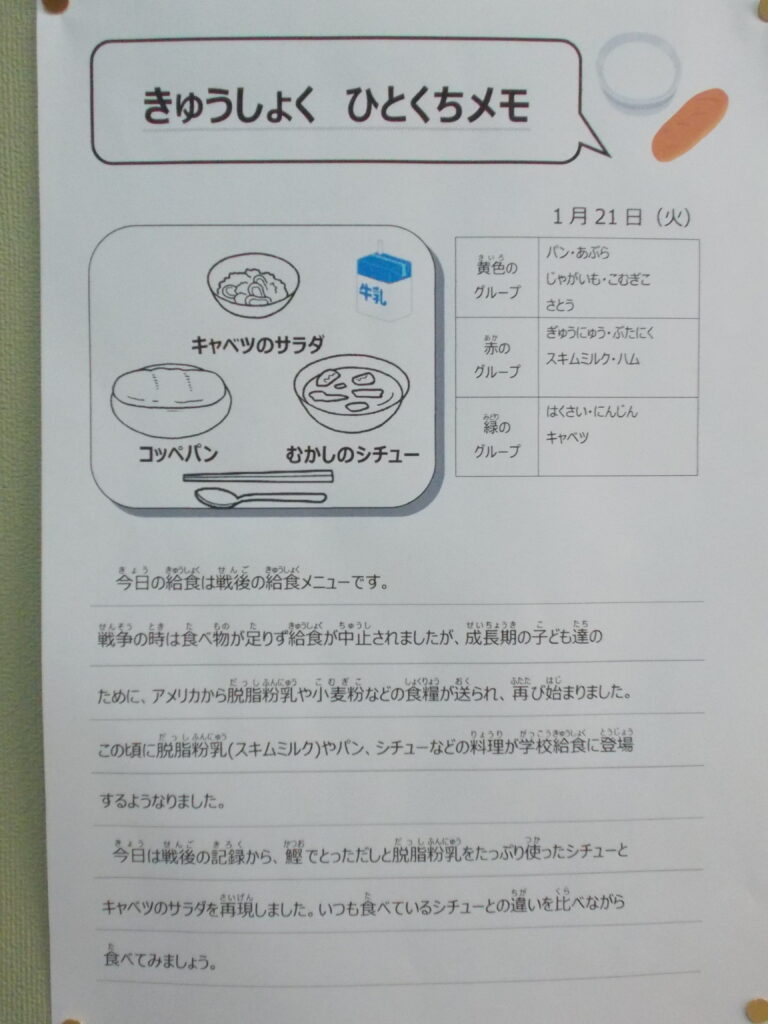 きゅうしょく ひとくちメモ
1月21日（火）
牛乳
キャベツのサラダ
コッペパン
むかしのシチュー
黄色の
グループ
パン・あぶら
じゃがいも・こむぎこ
さとう
赤の
グループ
ぎゅうにゅう・ぶたにく
スキムミルク・ハム
緑の
グループ
はくさい・にんじん
キャベツ
今日の給食は戦後の給食メニューです。
戦争の時は食べ物が足りず給食が中止されましたが、成長期の子ども達の
ために、アメリカから脱脂粉乳や小麦粉などの食糧が送られ、再び始まりました。
この頃に脱脂粉乳(スキムミルク)やパン、シチューなどの料理が学校給食に登場
するようなりました。
今日は戦後の記録から、鰹でとっただしと脱脂粉乳をたっぷり使ったシチューと
キャベツのサラダを再現しました。いつも食べているシチューとの違いを比べながら
食べてみましょう。